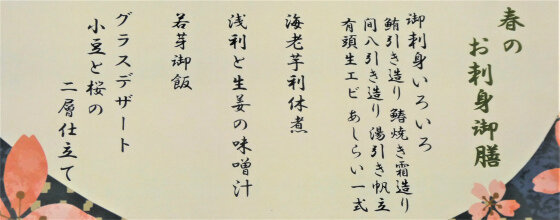 春の
お刺身御膳
御刺身いろいろ
鮪引き造り 鰆焼き霜造り
間八引き造り 湯引き帆立
有頭生エビ あしらい一式
海老芋利休煮
浅利と生姜の味噌汁
若芽御飯
グラスデザート
小豆と桜の
二層仕立て